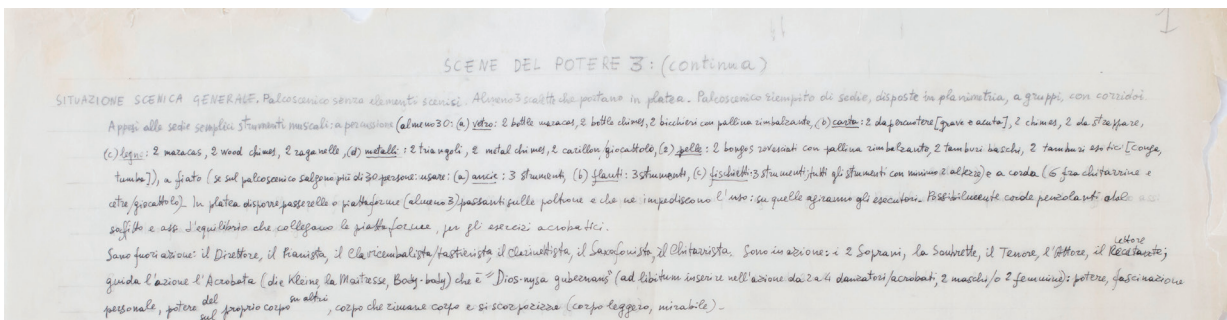 1
SCENE DEL POTERE 3: (continua)
SITUAZIONE SCENICA GENERALE. Palcoscenico senza elementi scenici. Almeno 3 scalette che portano in platea. Palcoscenico riempito di sedie, disposte in planimetria, a gruppi, con corridoi.
Appesi alle sedie semplici strumenti musicali: a percussione (almeno 30: (a) vetro: 2 bottle maracas, 2 bottle chimes, 2 bicchieri con pallina rimbalzante, (b) carta: 2 da percuotere [grave e acuta], 2 chimes, 2 da strappare,
(c) legno: 2 maracas, 2 wood chimes, 2 raganelle, (d) metalli: 2 triangoli, 2 metal chimes, 2 carillon giocattolo, (e) pelle: 2 bongos rovesciati con pallina rimbalzante, 2 tamburi baschi, 2 tamburi esotici [conga,
tumba]), a fiato (se sul palcoscenico salgono più di 30 persone: usare: (a) ancie: 3 strumenti, (b) flauti: 3 strumenti, (c) fischietti: 3 strumenti, tutti gli strumenti con minimo 2 altezze) e a corda (6 fra chitarrine e
cetre/giocattolo). In platea disporre passerelle o piattaforme (almeno 3) passanti sulle poltrone e che ne impediscono l'uso: su quelle agiranno gli esecutori. Possibilmente corde penzolanti dal
soffitto e assi d'equilibrio che collegano le piattaforme, per gli esercizi acrobatici.
Sono fuori azione: il Direttore, il Pianista, il Clavicembalista/tastierista, il Clarinettista, il Saxofonista, il Chitarrista. Sono in azione: i 2 Soprani, la Soubrette, il Tenore, l'Attore, il Recitante; Lettore
guida l'azione l'Acrobata (die Kleine, la Maitresse, Body-body) che è "Dios-nysa gubernans" (ad libitum inserire nell'azione da 2 a 4 danzatori/acrobati, 2 maschi/o 2 femmine): potere, fascinazione
personale, potere del sul proprio corpo su altri, corpo che rimane corpo e si scorporizza (corpo leggero, mirabile).